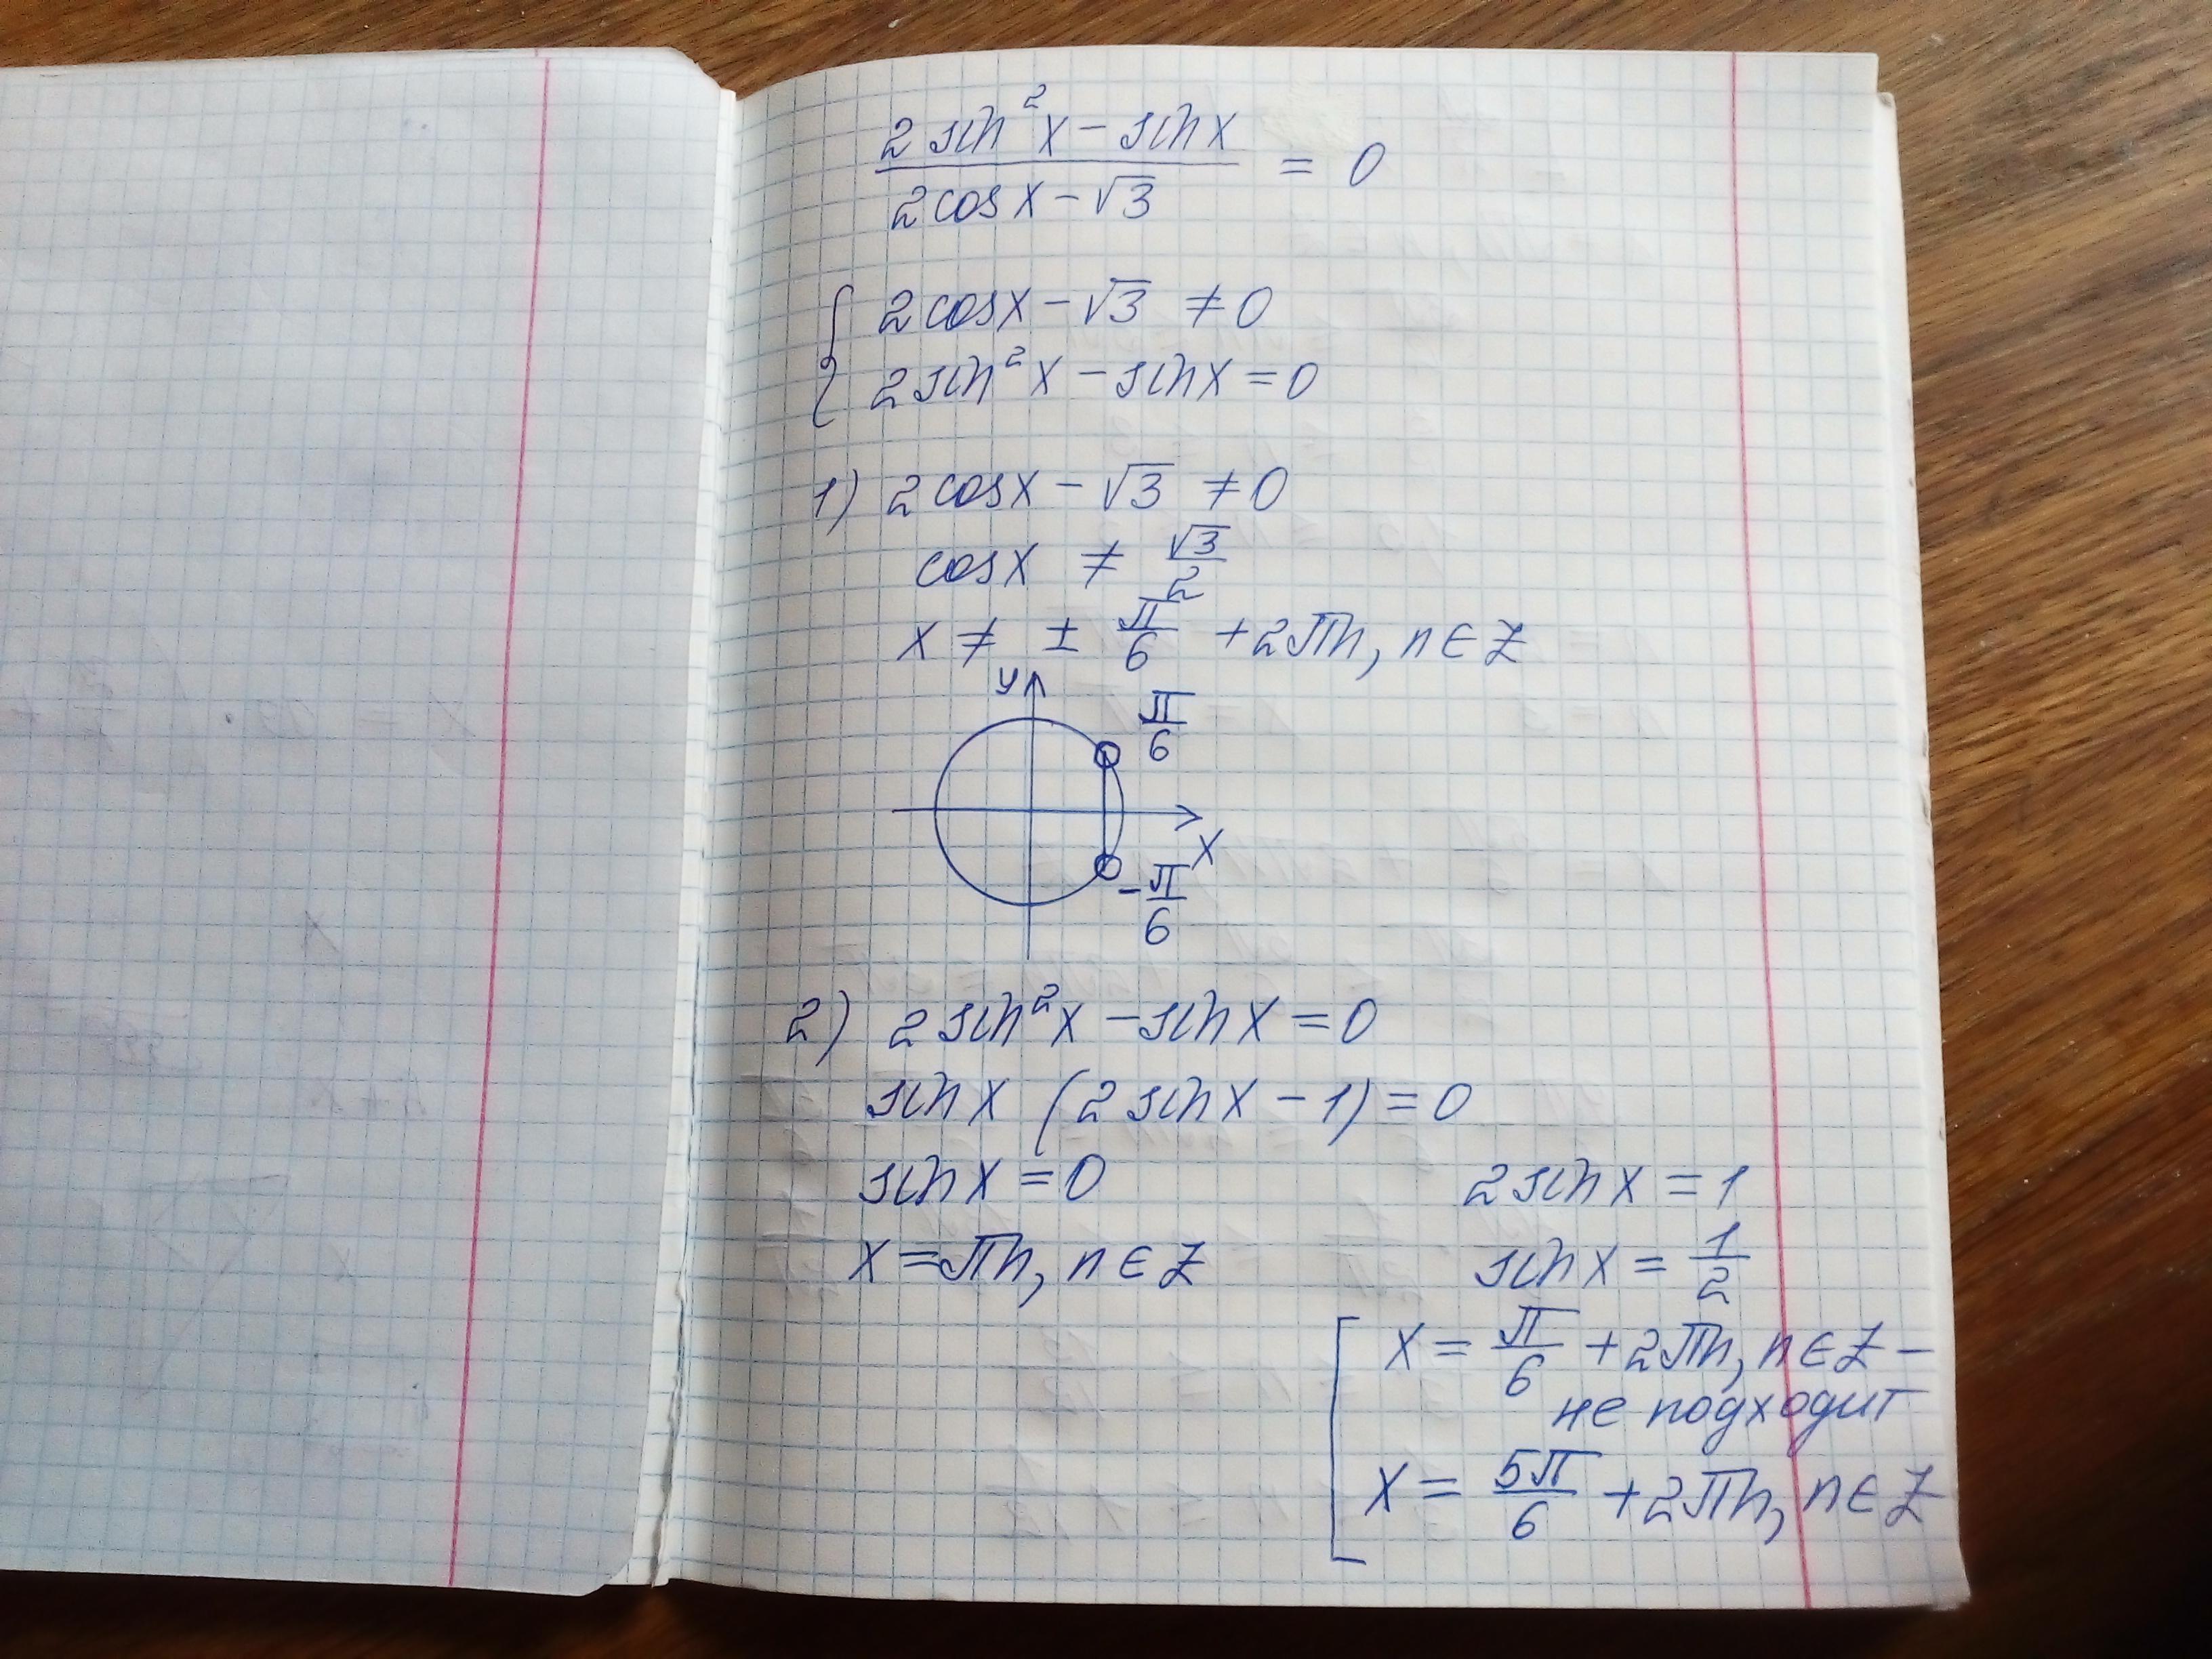 2sin²x − sinx
2cosx − √3 = 0
2cosx − √3 ≠ 0
2sin²x − sinx = 0
1) 2cosx − √3 ≠ 0
cosx ≠ √3/2
x ≠ ± π/6 + 2πn, n ∈ Z
y
π/6
x
−π/6
2) 2sin²x − sinx = 0
sinx (2sinx − 1) = 0
sinx = 0
x = πn, n ∈ Z
2sinx = 1
sinx = 1/2
x = π/6 + 2πn, n ∈ Z −
не подходит
x = 5π/6 + 2πn, n ∈ Z